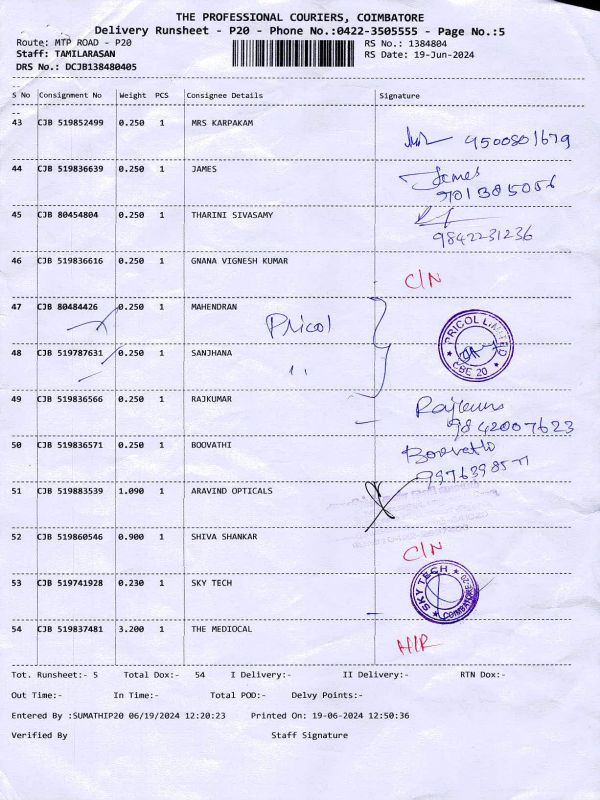 THE PROFESSIONAL COURIERS, COIMBATORE
Delivery Runsheet - P20 - Phone No.:0422-3505555 - Page No.:5
Route: MTP ROAD - P20 RS No.: 1384804
Staff: TAMILARASAN RS Date: 19-Jun-2024
DRS No.: DCJB138480405
S No Consignment No Weight PCS Consignee Details Signature
43 CJB 519852499 0.250 1 MRS KARPAKAM
9500801679
44 CJB 519836639 0.250 1 JAMES James
45 CJB 80454804 0.250 1 THARINI SIVASAMY
9842231236
46 CJB 519836616 0.250 1 GNANA VIGNESH KUMAR
C/N
47 CJB 80484426 0.250 1 MAHENDRAN
Pricol
PRICOL LIMITED
CBE 20
48 CJB 519787631 0.250 1 SANJHANA
,,
49 CJB 519836566 0.250 1 RAJKUMAR
9842007623
50 CJB 519836571 0.250 1 BOOVATHI
51 CJB 519883539 1.090 1 ARAVIND OPTICALS
52 CJB 519860546 0.900 1 SHIVA SHANKAR
C/N
53 CJB 519741928 0.230 1 SKY TECH
SKY TECH
COIMBATORE-20
54 CJB 519837481 3.200 1 THE MEDIOCAL
Tot. Runsheet:- 5 Total Dox:- 54 I Delivery:- II Delivery:- RTN Dox:-
Out Time:- In Time:- Total POD:- Delvy Points:-
Entered By :SUMATHIP20 06/19/2024 12:20:23 Printed On: 19-06-2024 12:50:36
Verified By Staff Signature